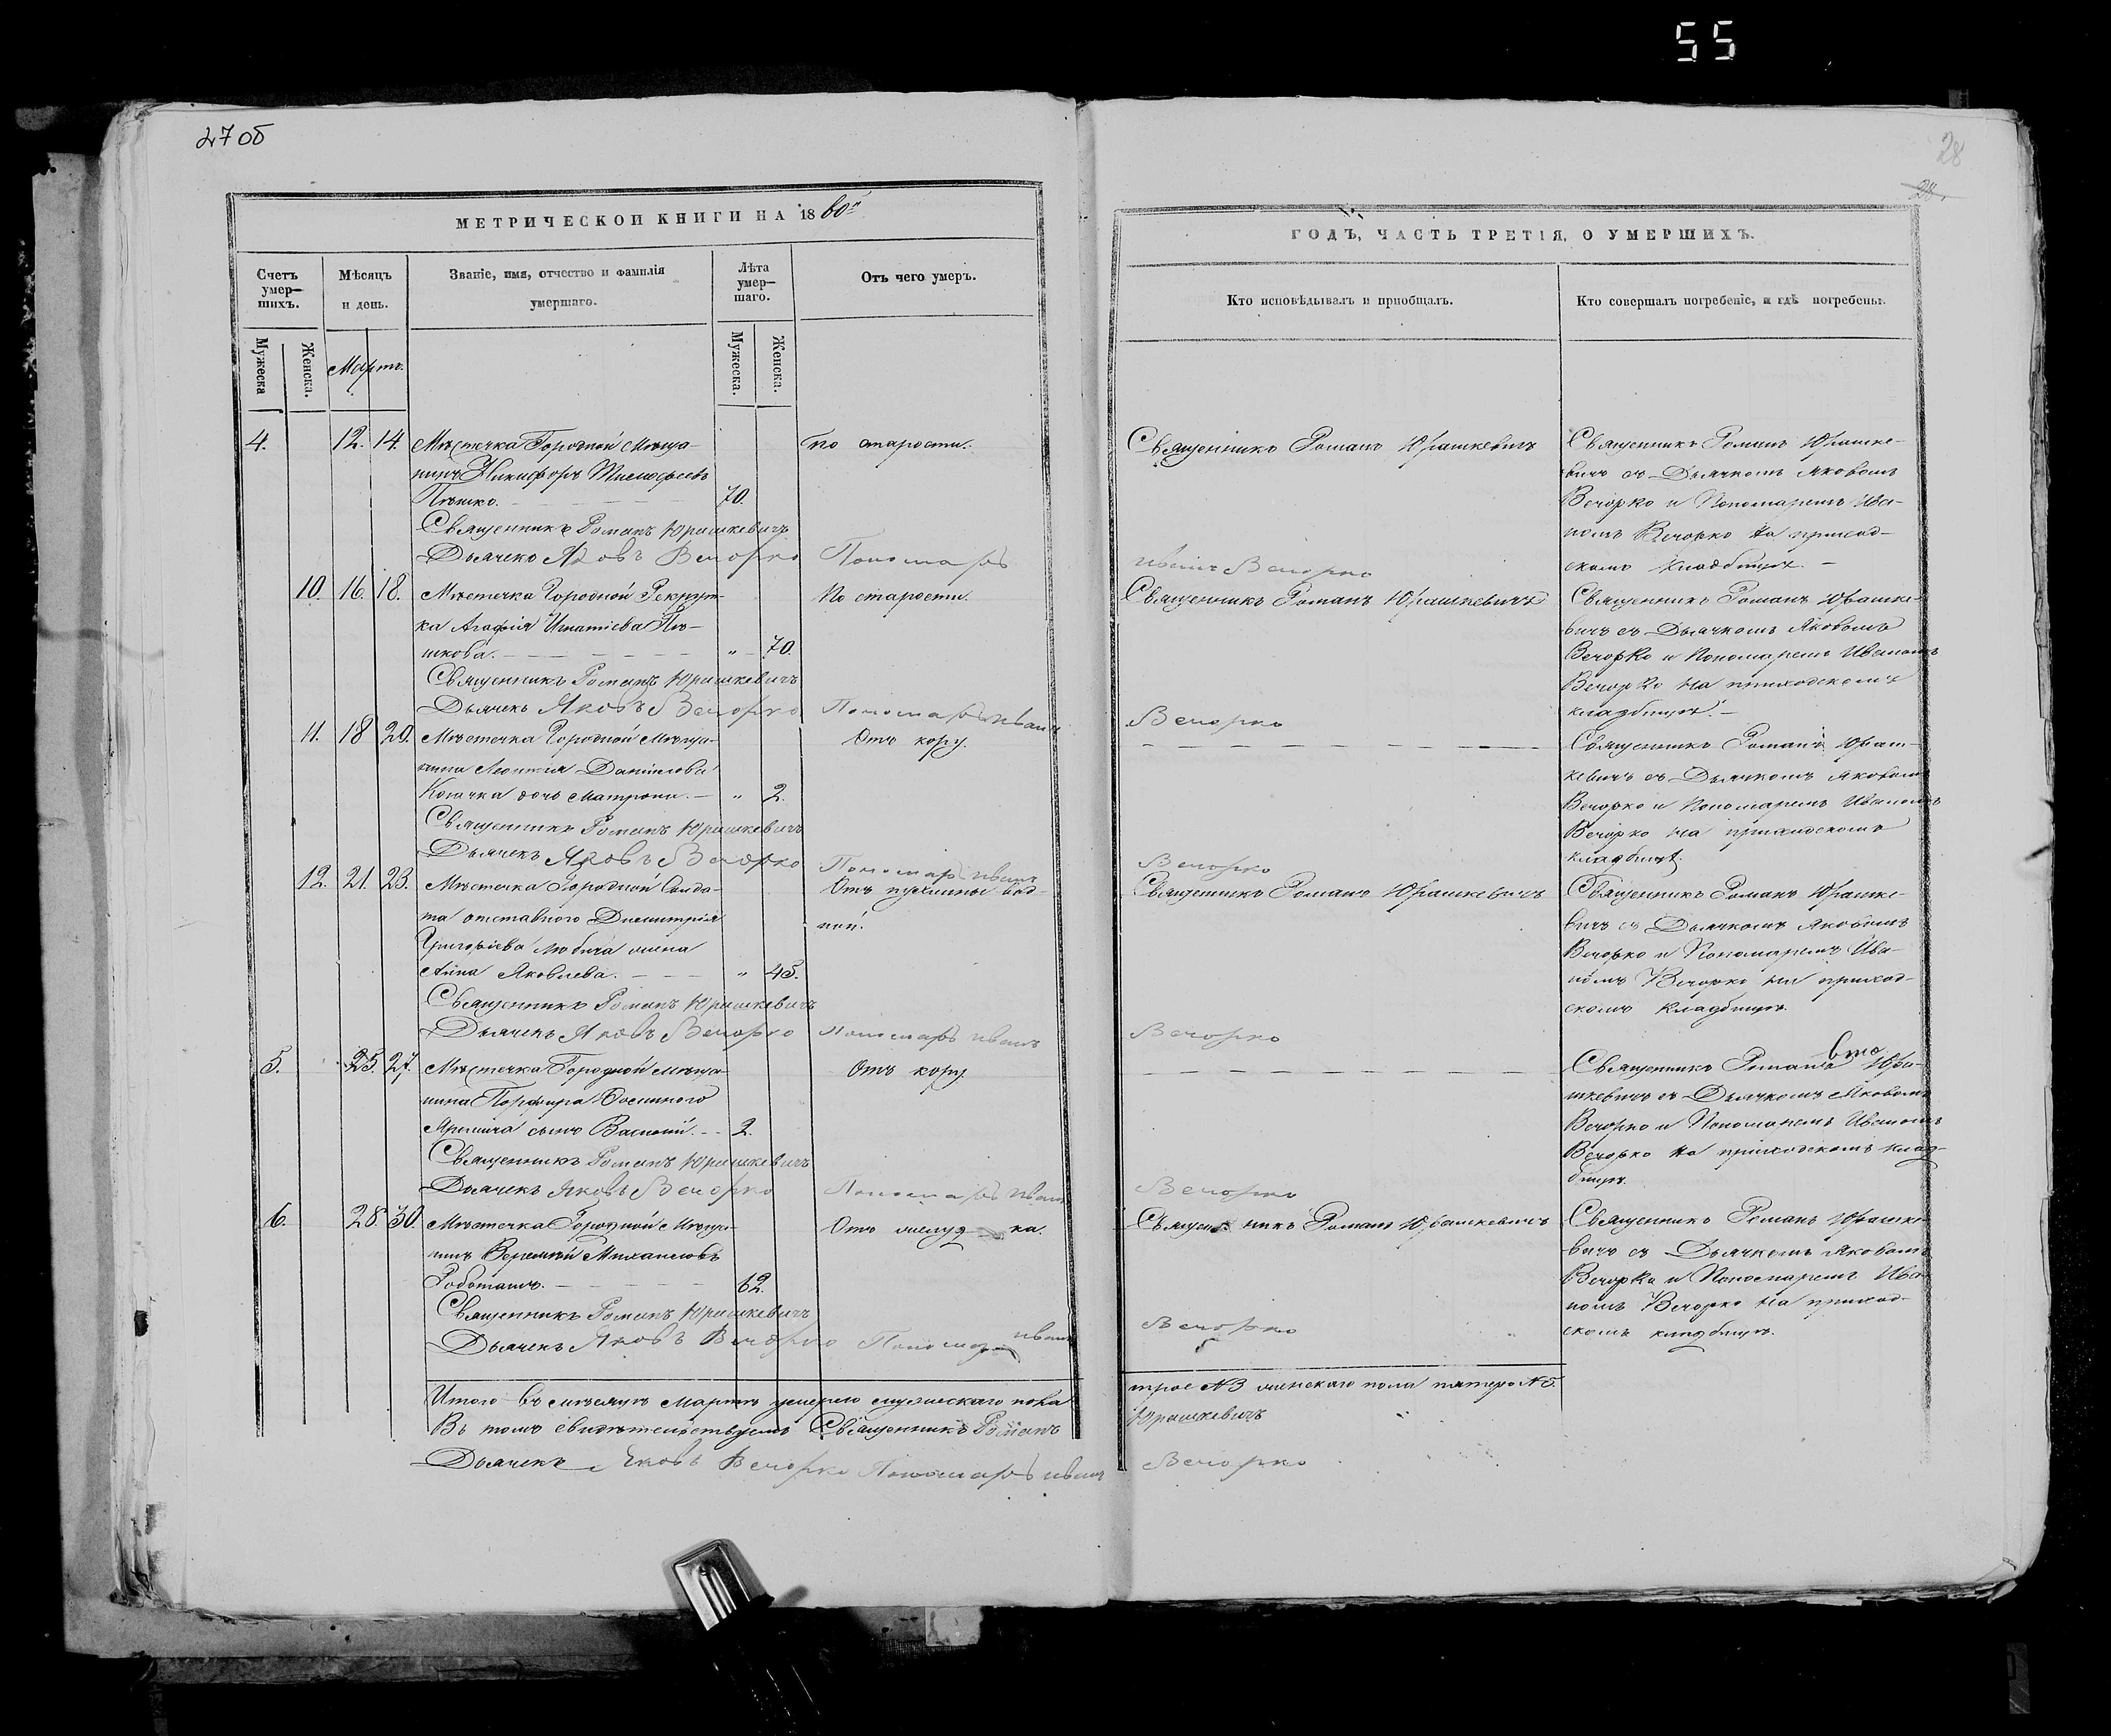 55
27 об
28
28.
МЕТРИЧЕСКОЙ КНИГИ НА 1860й
ГОДЪ, ЧАСТЬ ТРЕТІЯ, О УМЕРШИХЪ.
Счетъ умер-
шихъ.
Мѣсяцъ
и день.
Званіе, имя, отчество и фамилія
умершаго.
Лѣта
умер-
шаго.
Отъ чего умеръ.
Кто исповѣдывалъ и пріобщалъ.
Кто совершалъ погребеніе, и гдѣ погребены.
Мужеска
Женска.
Мартъ.
Мужеска.
Женска.
4. 12. 14. Мѣстечка Городной Мѣща-
нинъ Никифоръ
Пѣшко. 70.
по старости.
Священникъ Романъ Юрашкевичъ
Священникъ Романъ Юрашке-
вичъ съ Дьячкомъ Яковомъ
Вечорко и Пономаремъ Ива-
номъ Вечорко на приход-
скомъ кладбищѣ.
Священникъ Романъ Юрашкевичъ
Дьячекъ Яковъ Вечорко Пономарь иванъ Вечорко
10. 16. 18. Мѣстечка Городной Рекрут-
ка Агафія Игнатіева Пѣ-
шкова. " 70.
По старости.
Священникъ Романъ Юрашкевичъ
Священникъ Романъ Юрашке-
вичъ съ Дьячкомъ Яковомъ
Вечорко и Пономаремъ Иваномъ
Вечорко на приходскомъ
кладбищѣ.
Священникъ Романъ Юрашкевичъ
Дьячекъ Яковъ Вечорко Пономарь иванъ Вечорко
11. 18 20. Мѣстечка Городной Мѣща-
нина Леонтія Даніилова
дочь Матрона. " 2.
Отъ кору.
Священникъ Романъ Юраш-
кевичъ съ Дьячкомъ Яковомъ
Вечорко и Пономаремъ Иваномъ
Вечорко на приходскомъ
кладбищѣ.
Священникъ Романъ Юрашкевичъ
Дьячекъ Яковъ Вечорко Пономарь иванъ Вечорко
12. 21. 23. Мѣстечка Городной Солда-
та отставного Димитрія
Григоріева жена
Анна Яковлева. " 45.
Отъ пухлины вод-
ной.
Священникъ Романъ Юрашкевичъ
Священникъ Романъ Юрашке-
вичъ съ Дьячкомъ Яковомъ
Вечорко и Пономаремъ Ива-
номъ Вечорко на приход-
скомъ кладбищѣ.
Священникъ Романъ Юрашкевичъ
Дьячекъ Яковъ Вечорко Пономарь иванъ Вечорко
5. 25. 27. Мѣстечка Городной Мѣща-
нина Порфира
сынъ Василій. 2.
Отъ кору
Священникъ Романъ Юра-
шкевичъ съ Дьячкомъ Яковомъ
Вечорко и Пономаремъ Иваномъ
Вечорко на приходскомъ клад-
бищѣ.
Священникъ Романъ Юрашкевичъ
Дьячекъ Яковъ Вечорко Пономарь иванъ Вечорко
6. 28. 30. Мѣстечка Городной Мѣща-
нинъ Михаиловъ
62.
Отъ желуд ка.
Священникъ Романъ Юрашкевичъ
Священникъ Романъ Юрашке-
вичъ съ Дьячкомъ Яковомъ
Вечорко и Пономаремъ Ива-
номъ Вечорко на приход-
скомъ кладбищѣ.
Священникъ Романъ Юрашкевичъ
Дьячекъ Яковъ Вечорко Пономарь иванъ Вечорко
Итого въ мѣсяцѣ Мартѣ умерло мужескаго пола трое №3 женскаго пола пятеро №5.
Въ томъ свидѣтельствуемъ Священникъ Романъ Юрашкевичъ
Дьячекъ Яковъ Вечорко Пономарь иванъ Вечорко